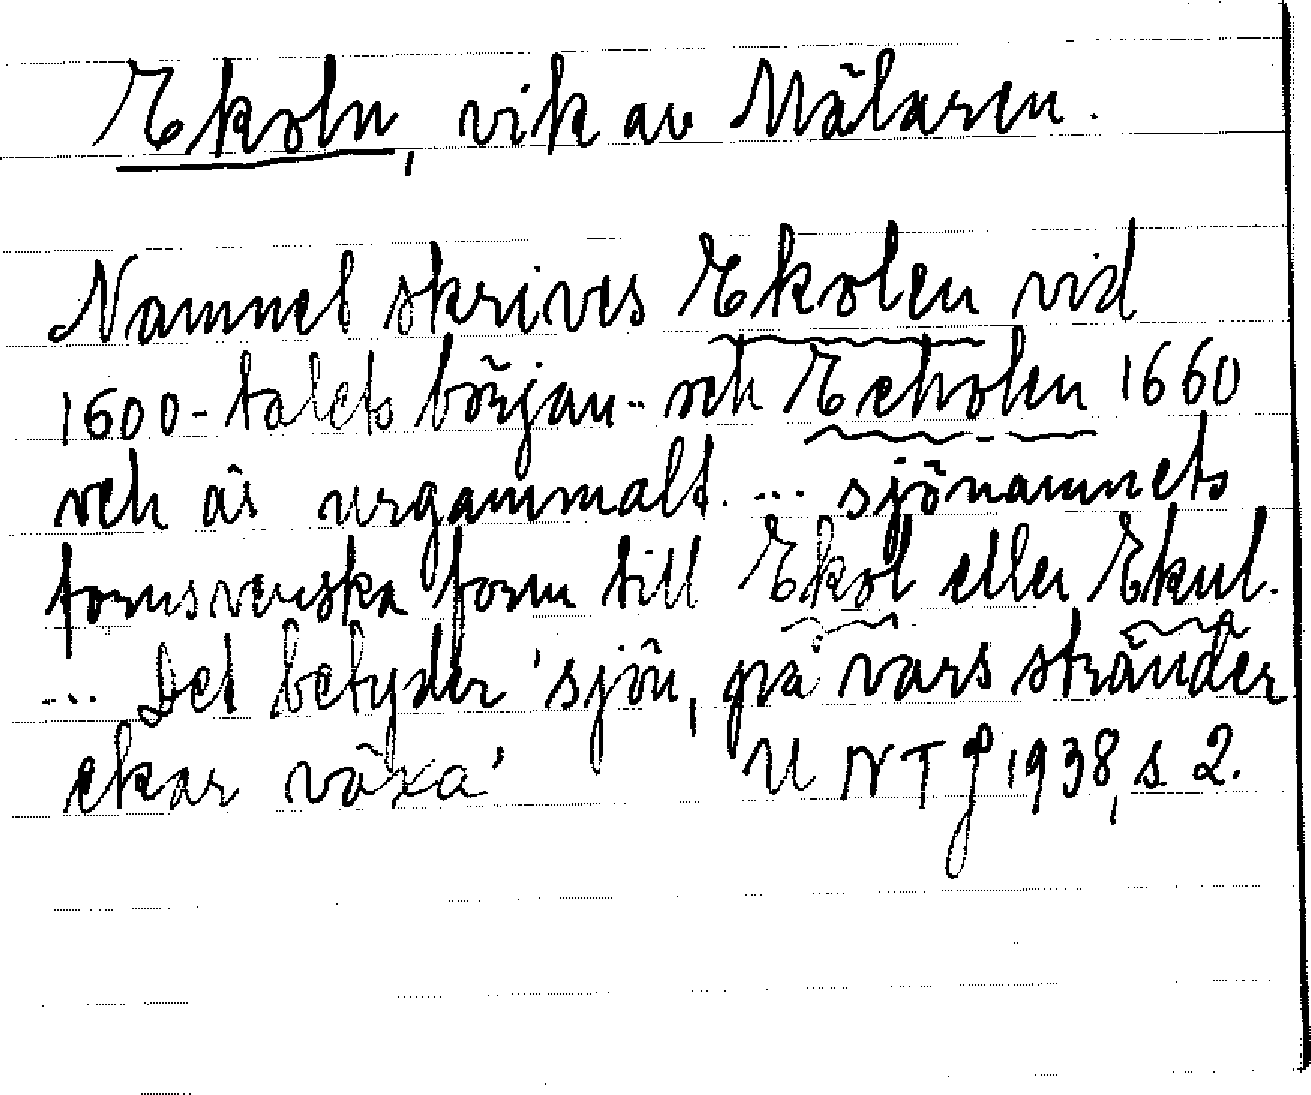 Ekoln, vik av Mälaren.
Namnet skrives Ekolen vid
1600-talets början och Echolen 1660
och är urgammalt. ... sjönamnets
fornsvenska form till Ekol eller Ekul.
... Det betyder 'sjön, på vars stränder
ekar växa' UNTJ 1938, s 2.